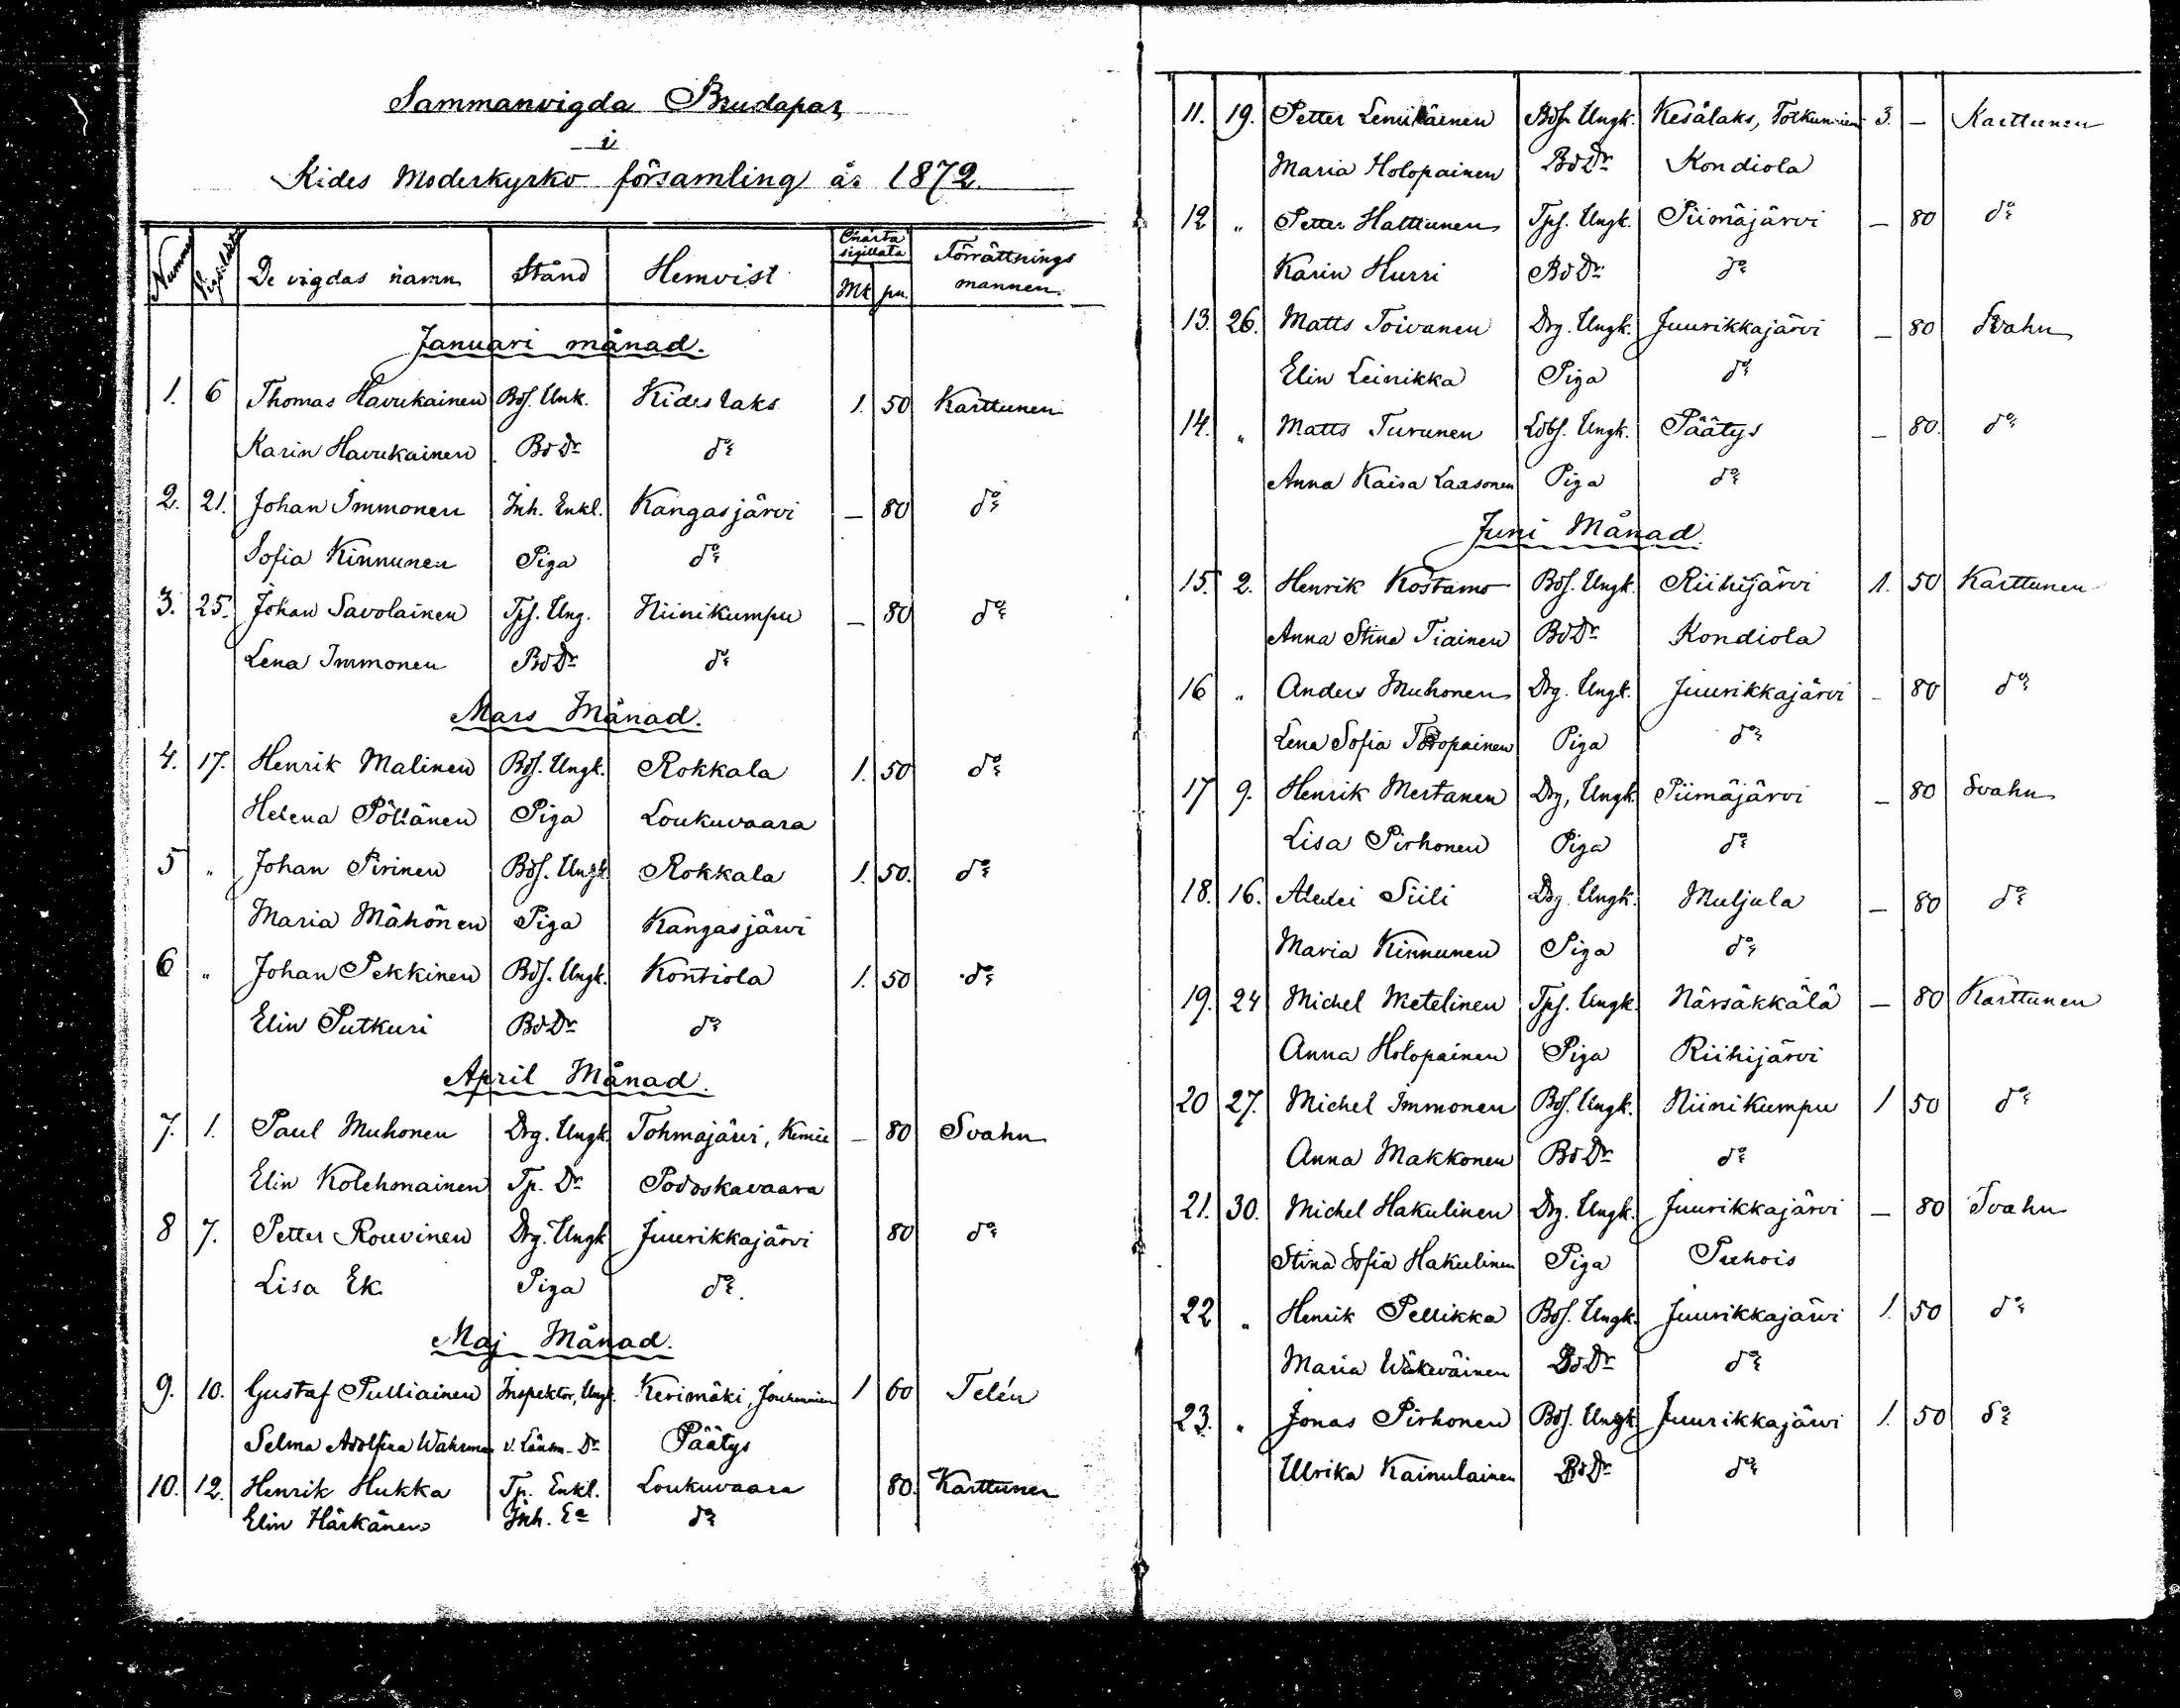 Sammanvigda Brudapar
i
Kides Moderkyrko församling år 1872.
Nummer Vigseldag De vigdas namn Stånd Hemvist Charta sigillata Mk pn. Förrättnings mannen.
Januari månad.
1. 6 Thomas Havukainen Bds. Unk. Kideslaks 1. 50 Karttunen
Karin Havukainen BdDr do
2. 21. Johan Immonen Inh. Enkl. Kangasjärvi — 80 do
Sofia Kinnunen Piga do
3. 25. Johan Savolainen Tps. Ung. Niinikumpu — 80 do
Lena Immonen BdDr do
Mars Månad.
4. 17. Henrik Malinen Bds. Ungk. Rokkala 1. 50 do
Helena Pöllänen Piga Loukuvaara
5 " Johan Pirinen Bds. Ungk. Rokkala 1. 50. do
Maria Mähönen Piga Kangasjärvi
6 " Johan Pekkinen Bds. Ungk. Kontiola 1. 50 do
Elin Putkuri BdDr do
April Månad.
7. 1. Paul Muhonen Drg. Ungk. Tohmajärvi, Kemie — 80 Svahn
Elin Kolehmainen Tp. Dr Podoskavaara
8 7. Petter Rouvinen Drg. Ungk Juurikkajärvi 80 do
Lisa Ek Piga do
Maj Månad.
9. 10. Gustaf Pulliainen Inspektor, Ungk. Kerimäki, 1 60 Telén
Selma Adolfina Wahrman v. Länsm. Dr Päätys
10. 12. Henrik Hukka Tp. Enkl. Loukuvaara 80. Karttunen
Elin Härkänen Inh. Ea do
11. 19. Petter Bds. Ungk. Kesälaks, 3. — Karttunen
Maria Holopainen BdDr Kondiola
12 " Petter Halttunen Tps. Ungk. Piimäjärvi — 80 do
Karin Hurri BdDr do
13. 26. Matts Toivanen Drg. Ungk. Juurikkajärvi — 80 Svahn
Elin Leinikka Piga do
14. " Matts Turunen Ldbs. Ungk. Päätys — 80. do
Anna Kaisa Laasonen Piga do
Juni Månad
15. 2. Henrik Kostamo Bds. Ungk. Riihijärvi 1. 50 Karttunen
Anna Stina Tiainen BdDr Kondiola
16 " Anders Muhonen Drg. Ungk. Juurikkajärvi — 80 do
Lena Sofia Toropainen Piga do
17 9. Henrik Mertanen Drg, Ungk. Piimäjärvi — 80 Svahn
Lisa Pirhonen Piga do
18. 16. Siili Drg. Ungk. Muljula — 80 do
Maria Kinnunen Piga do
19. 24 Michel Metelinen Tps. Ungk. Närsäkkälä — 80 Karttunen
Anna Holopainen Piga Riihijärvi
20 27. Michel Immonen Bds. Ungk. Niinikumpu 1 50 do
Anna Makkonen BdDr do
21. 30. Michel Hakulinen Drg. Ungk. Juurikkajärvi — 80 Svahn
Stina Sofia Hakulinen Piga Puhois
22 " Henrik Pellikka Bds. Ungk. Juurikkajärvi 1. 50 do
Maria Wäkeväinen BdDr do
23. " Jonas Pirhonen Bds. Ungk Juurikkajärvi 1. 50 do
Ulrika Kainulainen BdDr do